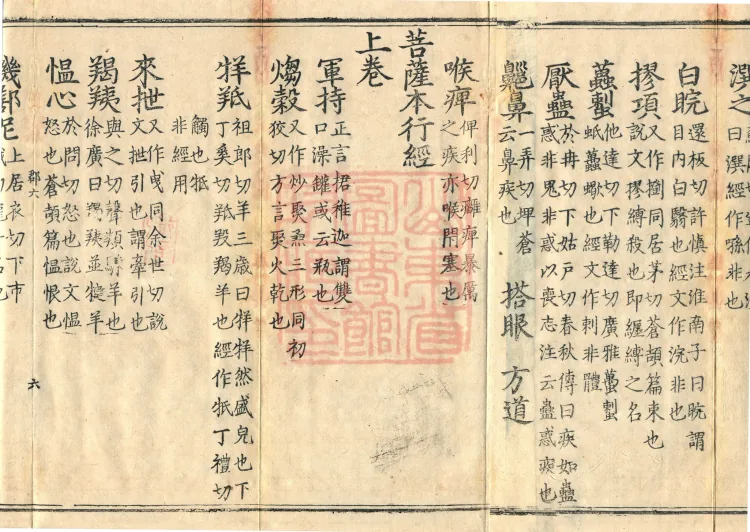 潠之 曰潠經作噀非也
白睆 還板切許慎注淮南子曰睆謂
目内白翳也經文作浣非也
摎項 又作𢵧同居茅切蒼頡篇束也
說文摎縛殺也即纏縛之名
蠆𧍒 他達切下勒達切廣雅蠆𧍒
蚳蠆蠍也經文作刺非體
厭蠱 於冉切下姑戶切春秋傳曰疾如蠱
惑非鬼非惑以喪志注云蠱惑疾也
齆鼻 一弄切埤蒼
云鼻疾也 搭眼 方道
喉痺 俾利切癰痺暴厲
之疾亦喉閇塞也
菩薩本行經
上卷
軍持 正言捃稚迦謂雙
口澡鑵或云瓶也
煼糓 又作炒㷅𤎖三形同初
狡切方言㷅火乾也
牂羝 祖郎切羊三歲曰牂牂然盛皃也下
丁奚切羝羖羯羊也經作牴丁禮切
觸也牴
非經用
郡六 六
來抴 又作曳同余世切說
文抴引也謂牽引也
羯羠 與之切聲類騬羊也
徐廣曰羯羠並犍羊
愠心 於問切怒也說文愠
怒也蒼頡篇愠恨也
上居衣切下市